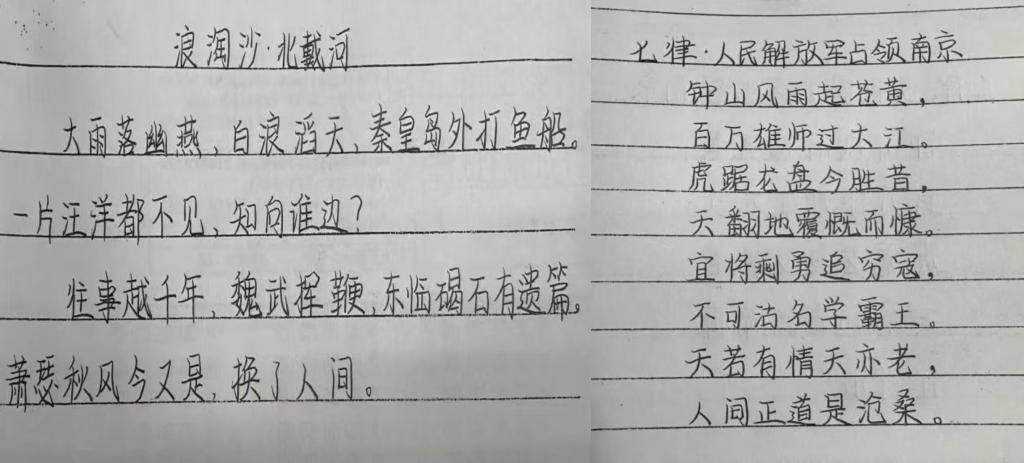 浪淘沙·北戴河
大雨落幽燕，白浪滔天，秦皇岛外打鱼船。
一片汪洋都不见，知向谁边？
往事越千年，魏武挥鞭，东临碣石有遗篇。
萧瑟秋风今又是，换了人间。
七律·人民解放军占领南京
钟山风雨起苍黄，
百万雄师过大江。
虎踞龙盘今胜昔，
天翻地覆慨而慷。
宜将剩勇追穷寇，
不可沽名学霸王。
天若有情天亦老，
人间正道是沧桑。